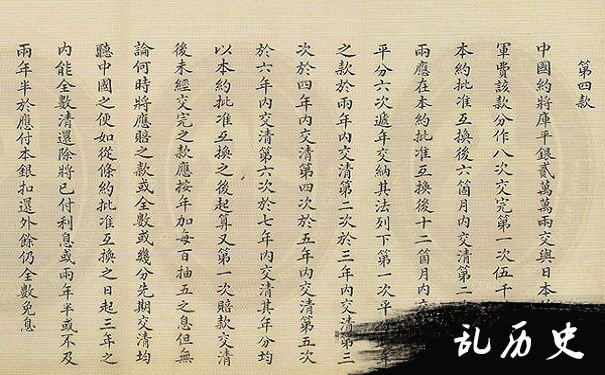 第四款
中國約將庫平銀貳萬萬兩交與日本
軍費該款分作八次交完第一次伍千
本約批准互換後六箇月內交清第二
兩應在本約批准互換後十二箇月內
平分六次遞年交納其法列下第一次平年
之款於兩年內交清第二次於三年內交清第三
次於四年內交清第四次於五年內交清第五次
於六年內交清第六次於七年內交清其年分均
以本約批准互換之後起算又第一次賠款交清
後未經交完之款應按年加每百抽五之息但無
論何時將應賠之款或全數或幾分先期交清均
聽中國之便如從條約批准互換之日起三年之
內能全數清還除將已付利息或兩年半或不及
兩年半於應付本銀扣還外餘仍全數免息
乱历史